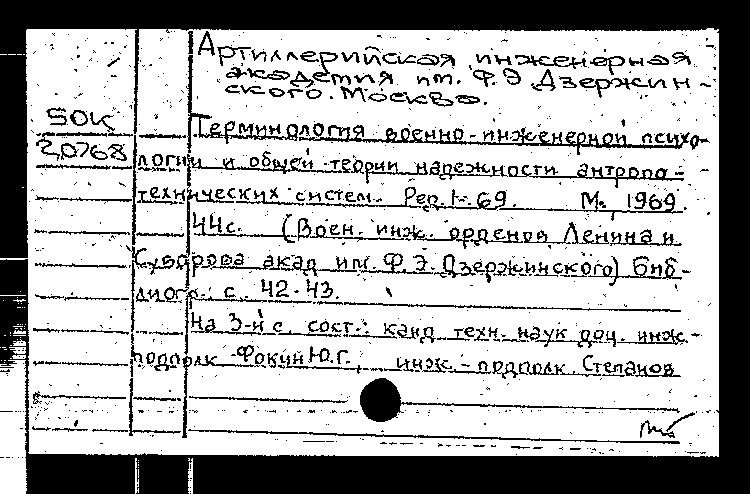 Артиллерийская инженерная
академия им. Ф.Э Дзержин-
ского. Москва.
50К
20768
Терминология военно-инженерной психо-
логии и общей теории надежности антропо-
технических систем. Рер. 1-69. М., 1969.
44с. (Воен. инж. орденов Ленина и
Суворова акад им. Ф.Э. Дзержинского) Биб-
лиогр.: с. 42-43.
На 3-й с. сост.: канд техн. наук доц. инж.-
подполк Фокин Ю.Г., инж.-подполк Степанов